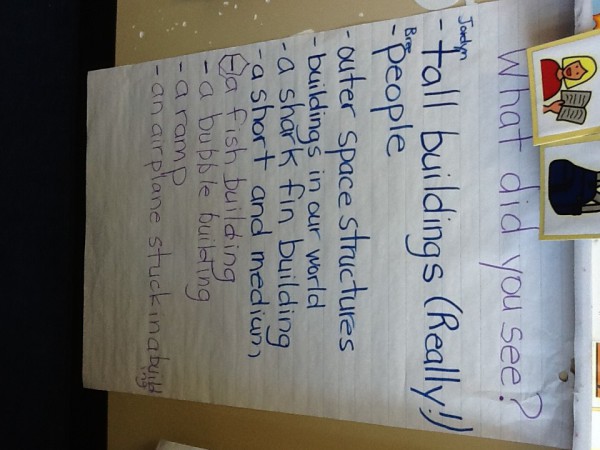 What did you see?
Jordyn
- tall buildings (Really!)
Bree
- people
- outer space structures
- buildings in our world
- a shark fin building
- a short and medium
- a fish building
- a bubble building
- a ramp
- an airplane stuck in a build
ing